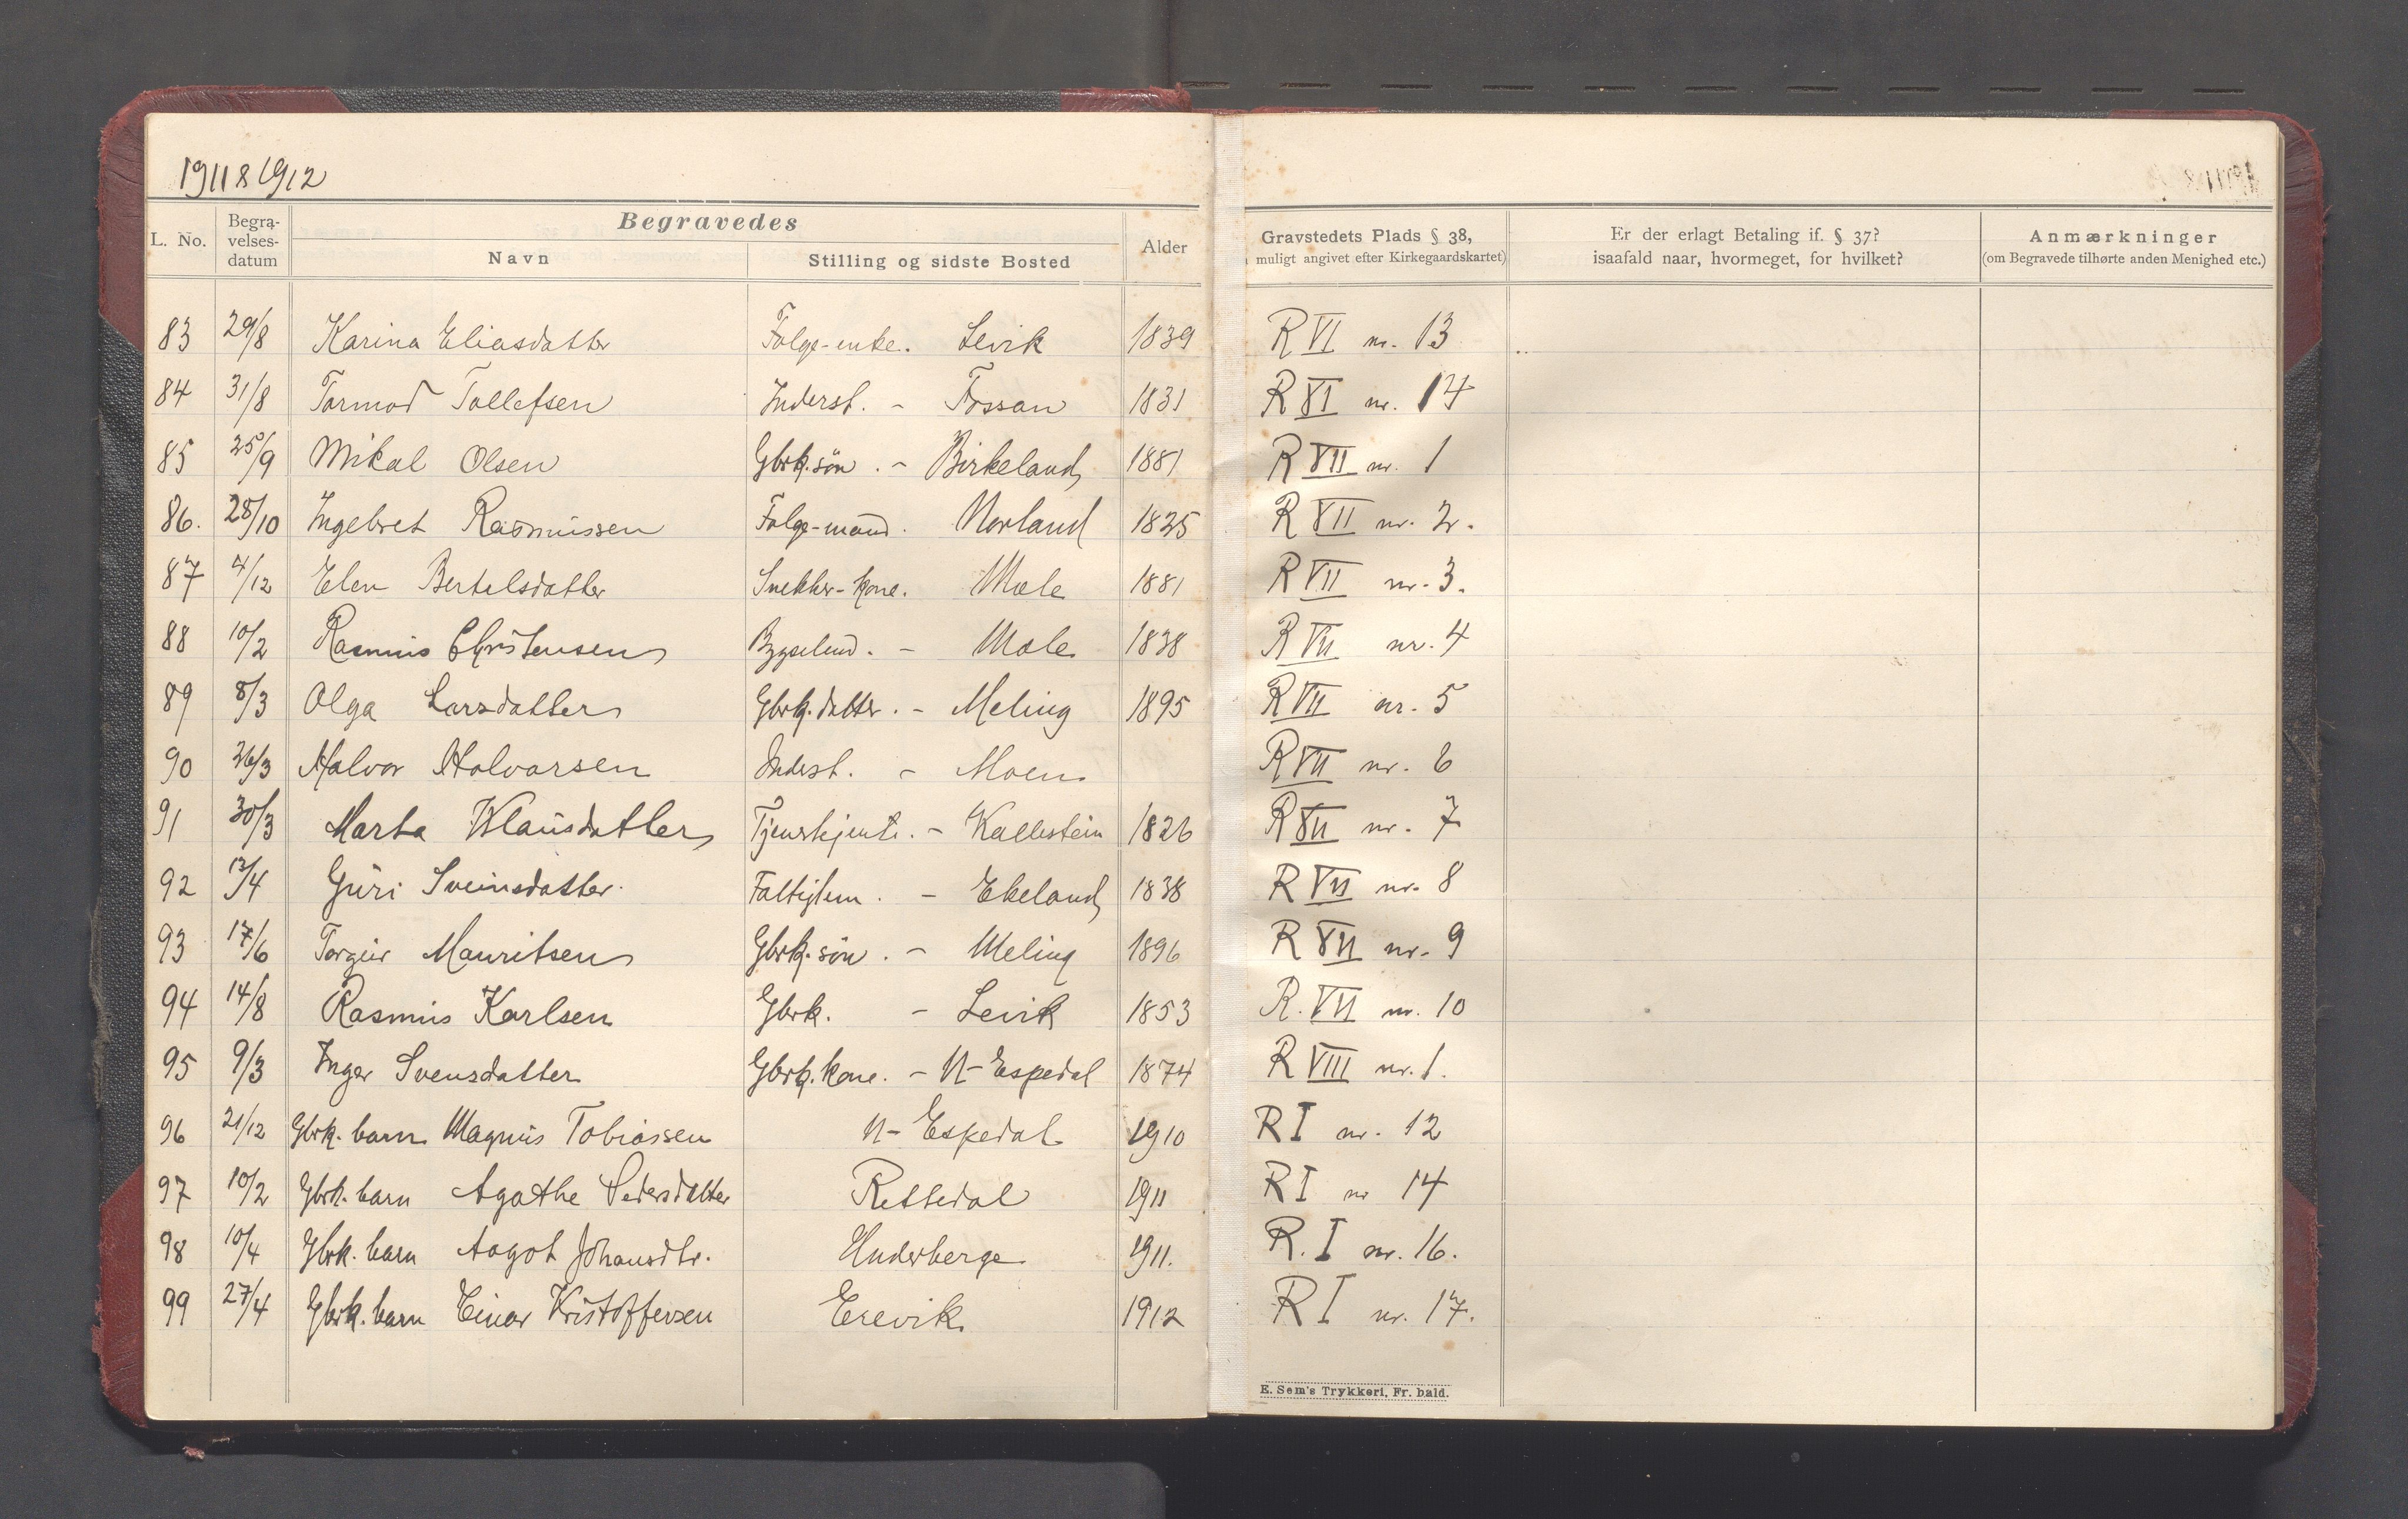 1911 & 1912
L. No. Begravelses-datum Begravedes Alder Gravstedets Plads § 38, Er der erlagt Betaling if. § 37? Anmærkninger
Navn Stilling og sidste Bosted muligt angivet efter Kirkegaardskartet) isaafald naar, hvormeget, for hvilket? (om Begravede tilhørte anden Menighed etc.)
83 29/8 Karina Eliasdatter Folge-enke. Levik 1839 R VI nr. 13
84 31/8 Tormod Tollefsen Inderst. - Fossan 1831 R VI nr. 14
85 25/9 Mikal Olsen Gbrk. søn. - Birkeland 1881 R VII nr. 1
86. 28/10 Ingebret Rasmussen Folge-mand. Norland 1825 R VII nr. 2.
87 4/12 Elen Bertelsdatter Snekker-kone. Mæle 1881 R VII nr. 3.
88 10/2 Rasmus Christensen Bygselmd. - Mæle 1838 R VII nr. 4
89 8/3 Olga Larsdatter Gbrk. datter. - Meling 1895 R VII nr. 5
90 26/3 Halvor Halvorsen Inderst. - Moen R VII nr. 6
91 30/3 Marta Klausdatter - Kallestein 1826 R VII nr. 7
92 13/4 Guri Sveinsdatter. Fattiglem. - Ekeland 1838 R VII nr. 8
93 17/6 Torgeir Mauritsen Gbrk. søn. - Meling 1896 R VII nr. 9
94 14/8 Rasmus Karlsen Gbrk. - Levik 1853 R. VII nr. 10
95 9/3 Inger Svensdatter Gbrk. kone. - N-Espedal 1874 R VIII nr. 1.
96 21/12 Gbrk. barn Magnus Tobiassen N-Espedal 1910 R I nr. 12
97 10/2 Gbrk. barn Agathe Pedersdatter Rettedal 1911 R I nr 14
98 10/4 Gbrk. barn Aagot Johansdtr. Underberge 1911. R. I nr. 16.
99 27/4 Gbrk. barn Einar Kristoffersen Erevik 1912 R I nr. 17.
E. Sem's Trykkeri, Fr.hald.